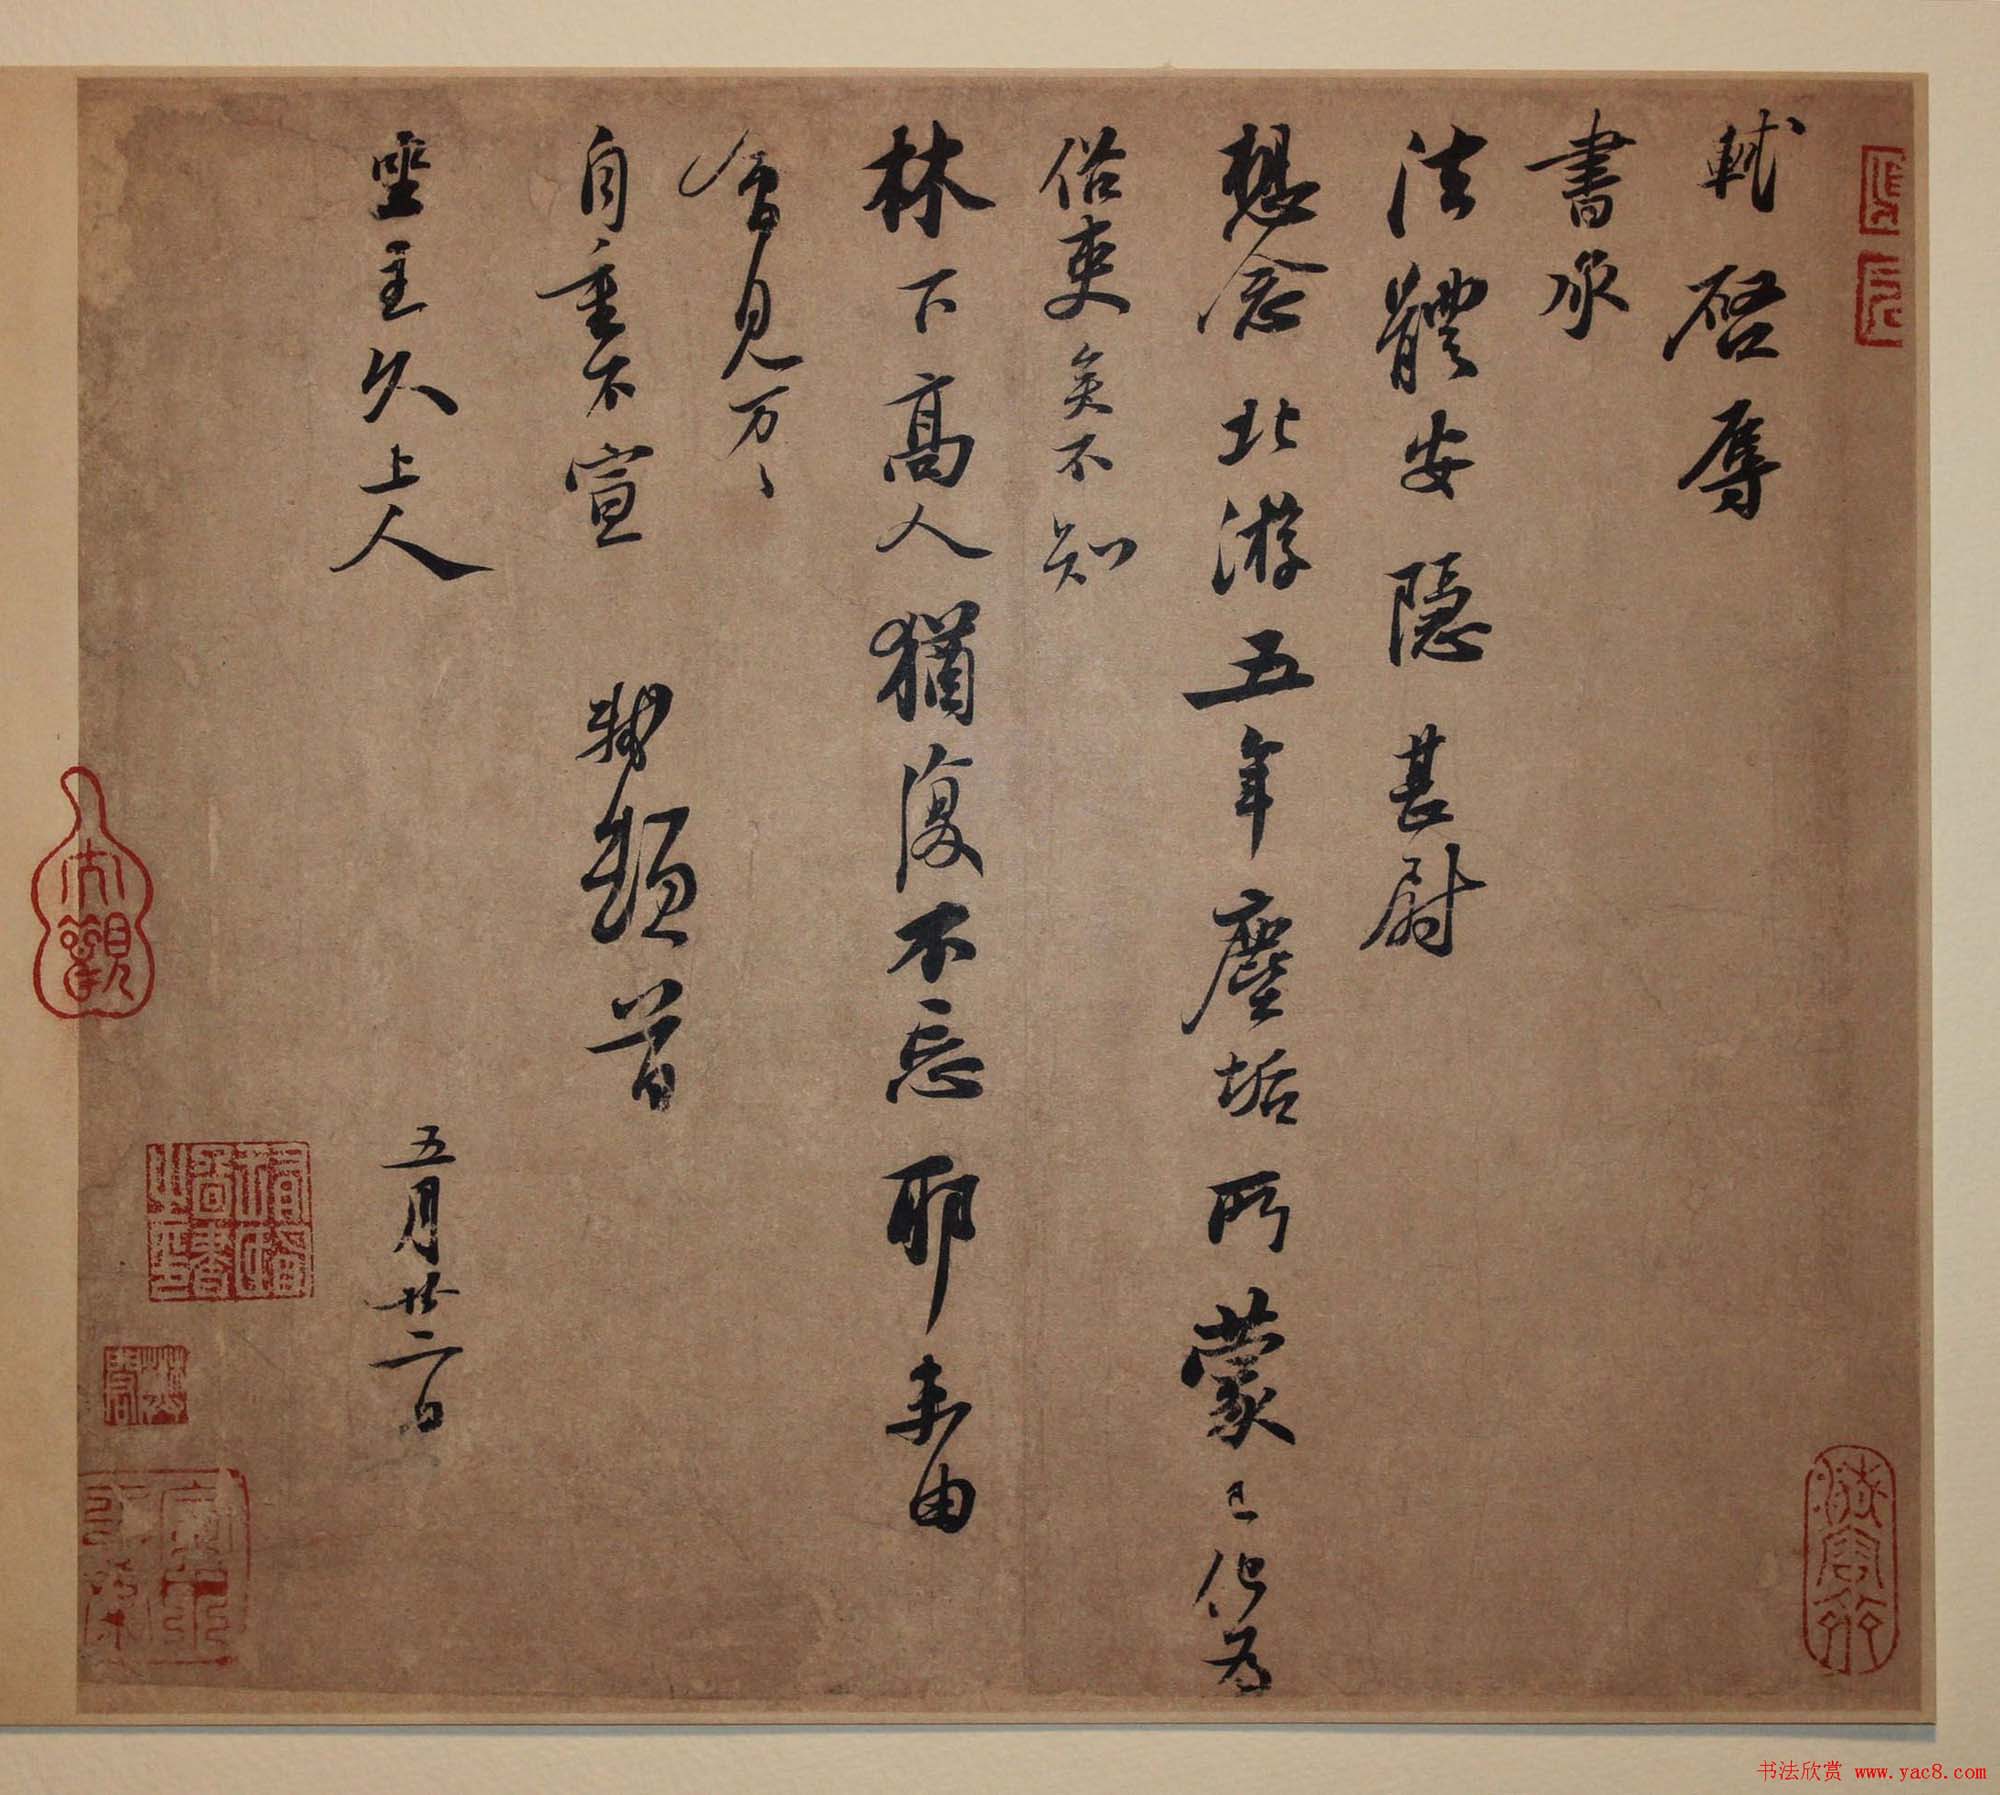 軾啓辱
書承
法體安隱甚尉
想念北游五年塵垢所蒙已化爲
俗吏矣不知
林下高人猶復不忘耶未由
會見万万
自重不宣 軾頓首
坐主久上人 五月廿二日
大觀
书法欣赏 www.yac8.com